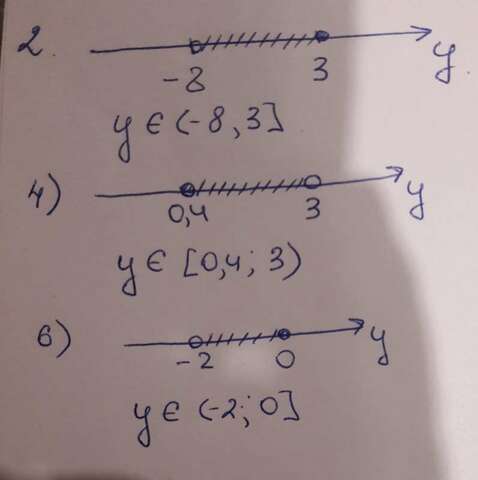 2.
-8 3 y
y ∈ (-8, 3]
4)
0,4 3 y
y ∈ [0,4; 3)
6)
-2 0 y
y ∈ (-2; 0]